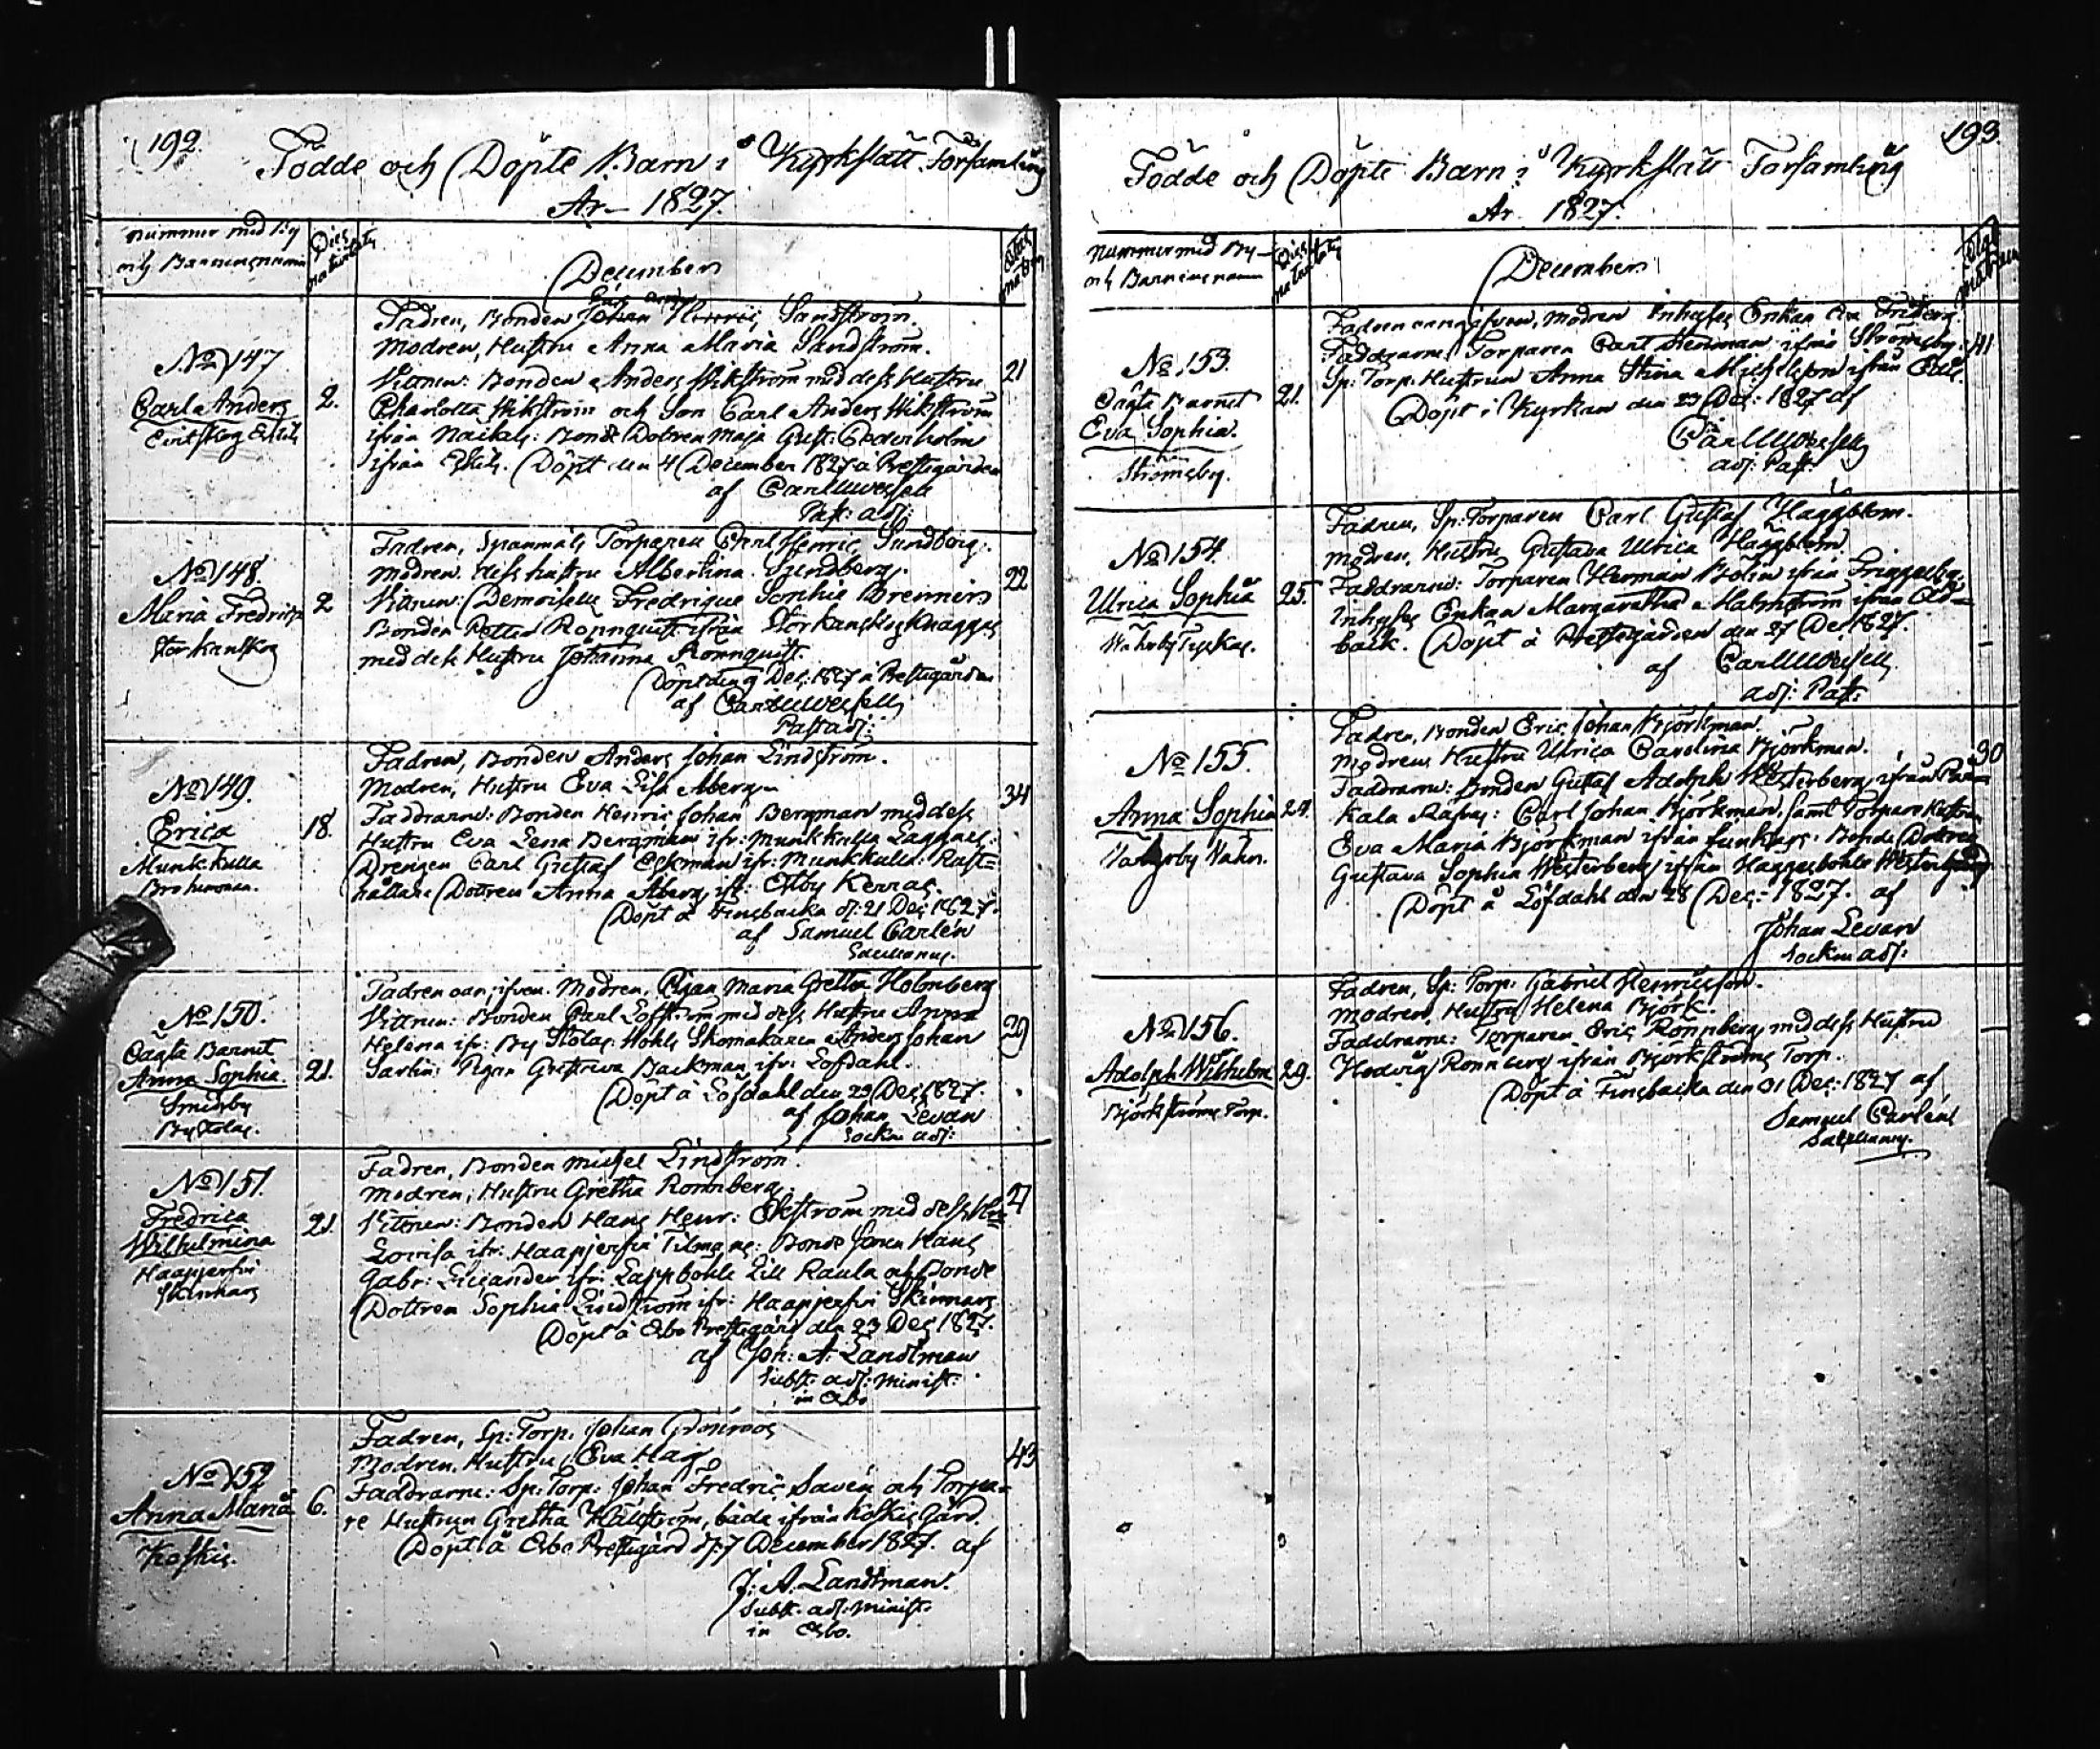 192.
Födde och Döpte Barn i Kyrkslätt Församling
År 1827.
Nummer med By
och Barnens namn
Dies natalis
December
Ætas matris
No 147
Carl Anders
2.
Fadren, Bonden Johan Sandström.
Modren, Hustru Anna Maria Sandström.
21
Vittnen: Bonden Anders Wikström med dess Hustru
Charlotta Wikström och Son Carl Anders Wikström
ifrån Bonde Dottren Maja Cederholm
ifrån Döpt den 4 December 1827 å Prestgården
af Carl
Past: adj:
No 148.
Maria Fredrica
Storkanskog
2
Fadren, Spanmåls Torparen Carl Henric Sundberg.
Modren dess hustru Albertina Sundberg.
22
Vittnen: Demoiselle Fredrique Sophie Brenner
Bonden Petter Rönnquist ifrån Storkanskog
med dess Hustru Johanna Rönnquist.
Döpt den 9 Dec: 1827 å Prestgården
af Carl
Past adj:
No 149.
Erica
Munkkulla
18.
Fadren, Bonden Anders Johan Lindström.
Modren, Hustru Eva Lisa Åberg
34
Faddrarne: Bonden Henric Johan Bergman med dess
Hustru Eva Lena Bergman ifr: Munkkulla Laggars:
Drengen Carl Gustaf Eckman ifr: Munkkulla:
hållare Dottren Anna Åberg ifr: Estby Kerras.
Döpt å Finsbacka d: 21 Dec 1827.
af Samuel Carlén
No 150.
Oägta Barnet
Anna Sophia.
Smedsby
21.
Fadren oangifven. Modren, Pigan Maria Gretha Holmberg
Vittnen: Bonden Carl Löfström med dess Hustru Anna
29
Helena ifr: By Skomakaren Anders Johan
Sarlin: Pigan Backman ifr: Löfdahl.
Döpt å Löfdahl den 23 Dec 1827.
af Johan Levan
Sockn adj:
No 151.
Fredrica
Wilhelmina
Haapjerfvi
Skinnars
21.
Fadren, Bonden Michel Lindström.
Modren, Hustru Gretha Rönnberg.
27
Vittnen: Bonden Hans Henr: Ekström med dess
Lovisa ifr: Haapjerfvi Bonde Sonen Hans
Gabr: ifr: Lappböhle Lill Raula och Bonde
Dottren Sophia Lindström ifr: Haapjerfvi Skinnars
Döpt å Esbo Prestgård den 23 Dec 1827.
af Joh: A: Landtman
Subst. adj: Minist:
in Esbo
No 152
Anna Maria
Koskis.
6.
Fadren, Sp: Torp: Johan Grönroos
Modren, Hustru Eva Hag
43
Faddrarne: Sp: Torp: Johan Fredric Savén och Torpa-
re Hustrun Gretha Hällström, båda ifrån Koskis Gård.
Döpt å Esbo Prestgård d: 7 December 1827. af
J: A. Landtman.
Subst. adj: Minist.
in Esbo.
193.
Födde och Döpte Barn i Kyrkslätt Församling
År 1827.
Nummer med By
och Barnens namn
Dies natalis
December
No 153.
Oägta Barnet
Eva Sophia.
Strömsby.
21.
Fadren oangifven, Modren Inhyses Enkan Eva Friberg
Faddrarne Torparen Carl Stenman ifrån Strömsby.
41
Sp: Torp: Hustrun Anna Stina ifrån
Döpt i Kyrkan den 23 Dec: 1827 af
Carl
adj: Past:
No 154.
Ulrica Sophia
25.
Fadren, Sp: Torparen Carl Gustaf Häggblom.
Modren, Hustru Gustava Ulrica Häggblom.
Faddrarne: Torparen Herman Bolin ifrån
Inhyses Enkan Margaretha Malmström ifrån
Döpt å Prestgården den 27 Dec 1827.
af Carl
adj: Past:
No 155.
Anna Sophia
Fadren, Bonden Eric Johan Björkman.
Modren Hustru Ulrica Carolina Björkman.
30
Faddrarne: Bonden Gustaf Adolph Westerberg, ifrån
Carl Johan Björkman, samt Torpare Hustrun
Eva Maria Björkman ifrån Bonde Dottren
Gustava Sophia Westerberg ifrån Haggesböhle
Döpt å Löfdahl den 28 Dec: 1827. af
Johan Levan
Sockn adj:
No 156.
Adolph Wilhelm
Björkströms Torp.
29.
Fadren, Sp: Torp: Gabriel Henricsson.
Modren, Hustru Helena Björk.
Faddrarne: Torparen Eric Rönnberg med dess Hustru
Hedvig Rönnberg ifrån Björkströms Torp.
Döpt å Finsbacka den 31 Dec: 1827 af
Samuel Carlén